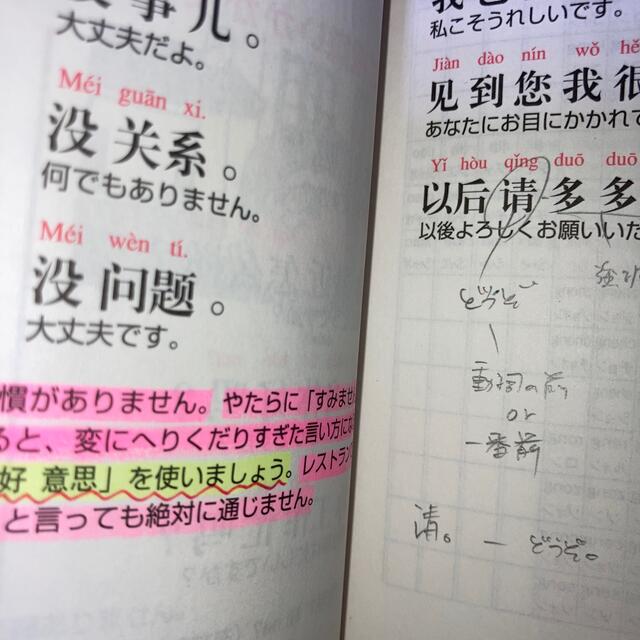 事儿。
大丈夫だよ。
Méi guān xi.
没关系。
何でもありません。
Méi wèn tí.
没问题。
大丈夫です。
慣がありません。やたらに「すみませ
ると、変にへりくだりすぎた言い方にな
好 意思」を使いましょう。レストラン
と言っても絶対に通じません。
私こそうれしいです。
Jiàn dào nín wǒ hě
见到您我很
あなたにお目にかかれて
Yǐ hòu qǐng duō duō
以后请多多
以後よろしくお願いいた
動詞の前
or
一番前
请。 — どうぞ。